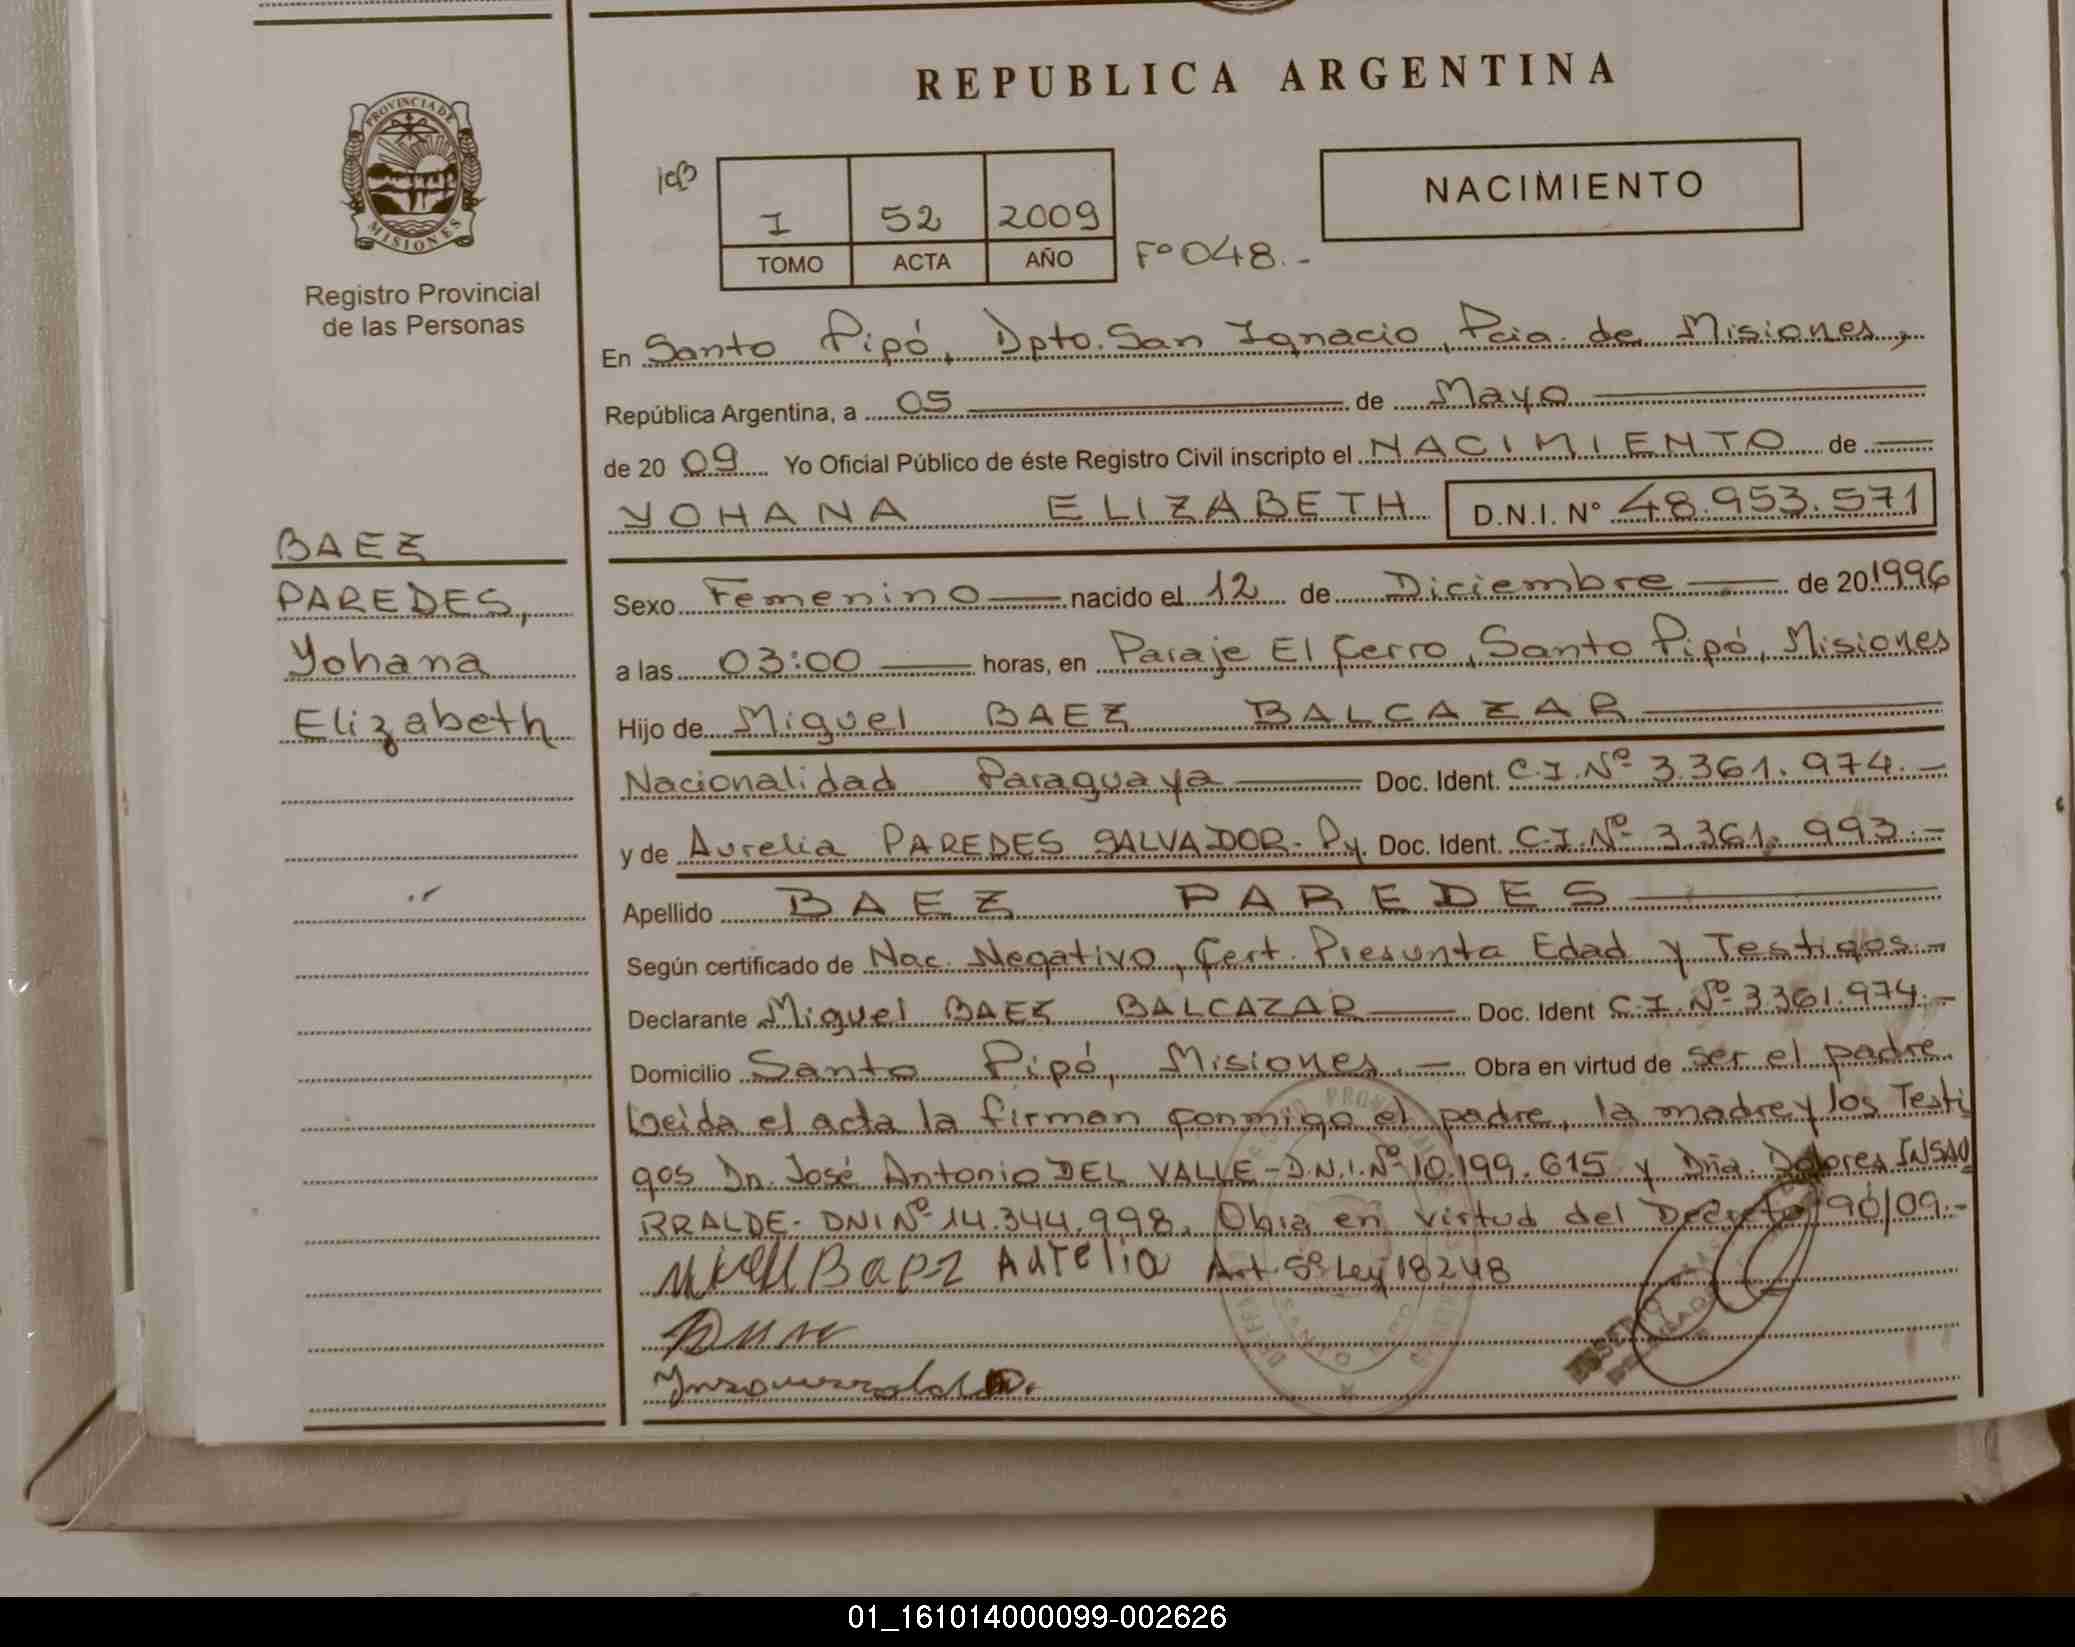 REPUBLICA ARGENTINA
PROVINCIA DE MISIONES
Registro Provincial
de las Personas
NACIMIENTO
I 52 2009
TOMO ACTA AÑO Fº 048.-
En Santo Pipó, Dpto. San Ignacio, Pcia. de Misiones,
República Argentina, a 05 de Mayo
de 20 09 Yo Oficial Público de éste Registro Civil inscripto el NACIMIENTO de
YOHANA ELIZABETH D.N.I. Nº 48.953.571
BAEZ
PAREDES,
Yohana
Elizabeth
Sexo Femenino nacido el 12 de Diciembre de 20 1996
a las 03:00 horas, en Paraje El Cerro, Santo Pipó, Misiones
Hijo de Miguel BAEZ BALCAZAR
Nacionalidad Paraguaya Doc. Ident. C.I. Nº 3.361.974.-
y de Aurelia PAREDES SALVADOR- Py. Doc. Ident. C.I. Nº 3.361.993.-
Apellido BAEZ PAREDES
Según certificado de Nac. Negativo, Cert. Presunta Edad y Testigos.-
Declarante Miguel BAEZ BALCAZAR Doc. Ident C.I. Nº 3.361.974.-
Domicilio Santo Pipó, Misiones.- Obra en virtud de ser el padre
Leida el acta la firman conmigo el padre, la madre y los Testi
gos Dn. José Antonio DEL VALLE- D.N.I. Nº 10.199.615 y Dña. Dolores INSAU
RRALDE- DNI Nº 14.344.998. Obra en virtud del Decreto 90/09.-
Baez Aurelia Art. 5º Ley 18248
01_161014000099-002626